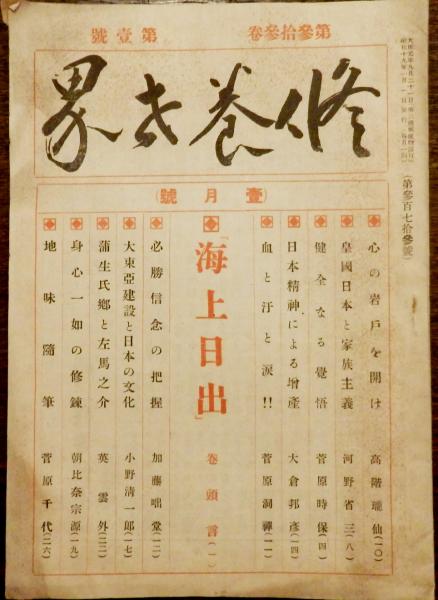 第參拾參卷 第壹號
修養世界
(第參百七拾參號)
(壹月號)
心の岩戸を開け 高階瓏仙(一〇)
皇國日本と家族主義 河野省三(八)
健全なる覺悟 菅原時保(四)
日本精神による增產 大倉邦彥(一四)
血と汗と淚!! 菅原洞禪(一一)
「海上日出」 卷頭言(一)
必勝信念の把握 加藤咄堂(一二)
大東亞建設と日本の文化 小野淸一郎(一七)
蒲生氏鄕と左馬之介 英雲外(二二)
身心一如の修鍊 朝比奈宗源(一九)
地味隨筆 菅原千代(二六)